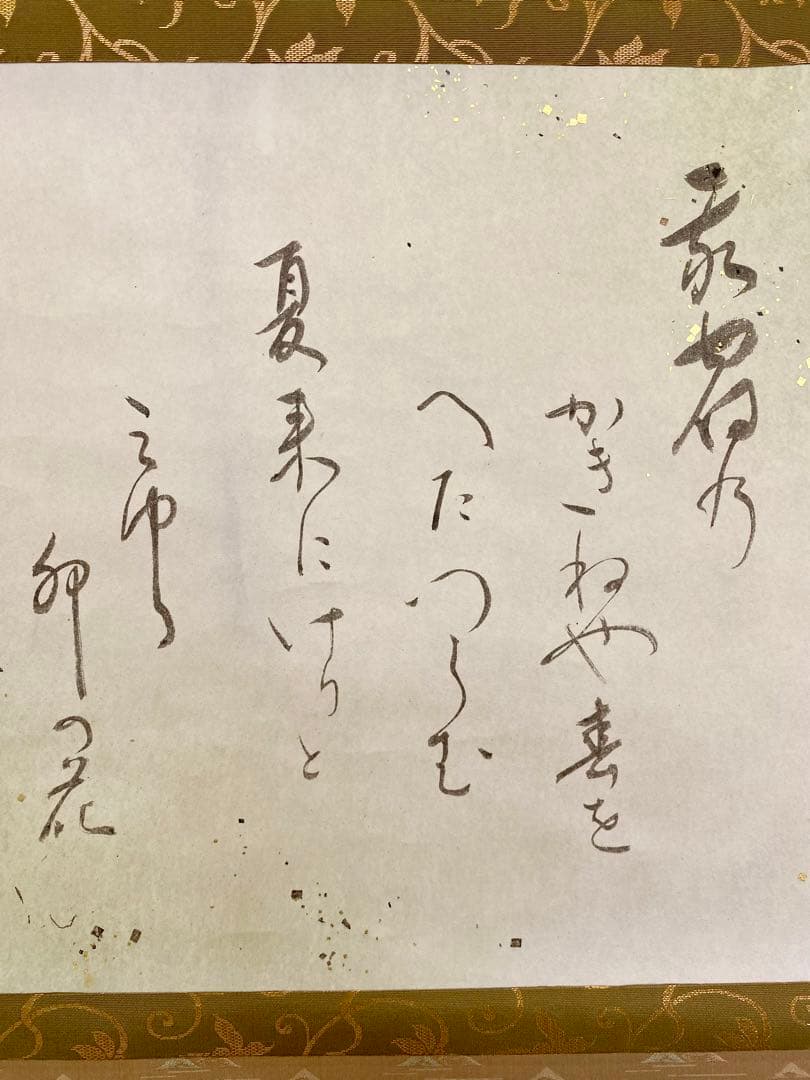 我宿乃
かきねや春を
へたつらむ
夏来にけりと
みゆる
卯の花